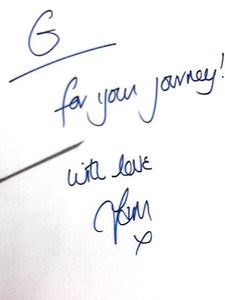 G
for your journey!
with love
x